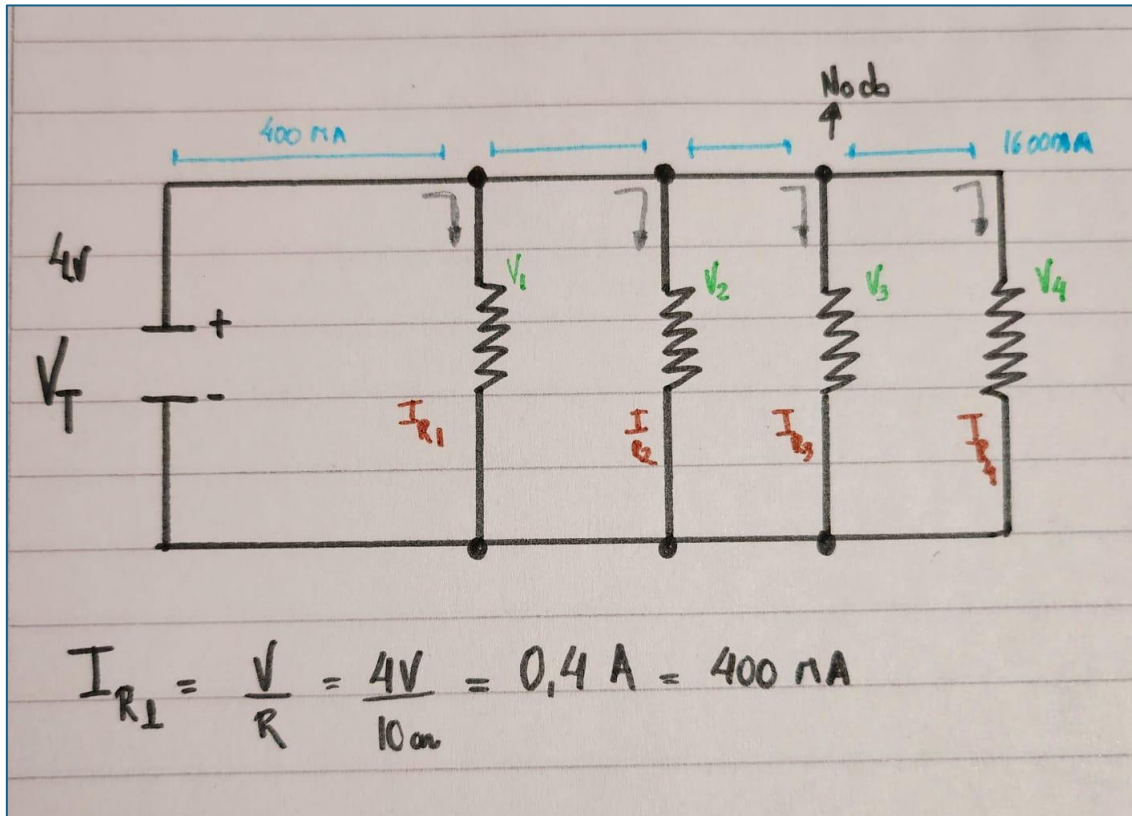 Nodo
400 mA
1600mA
4V
V1
V2
V3
V4
+
VT
-
IR1
IR2
IR3
IR4
IR1 = V/R = 4V/10 = 0,4 A = 400 mA